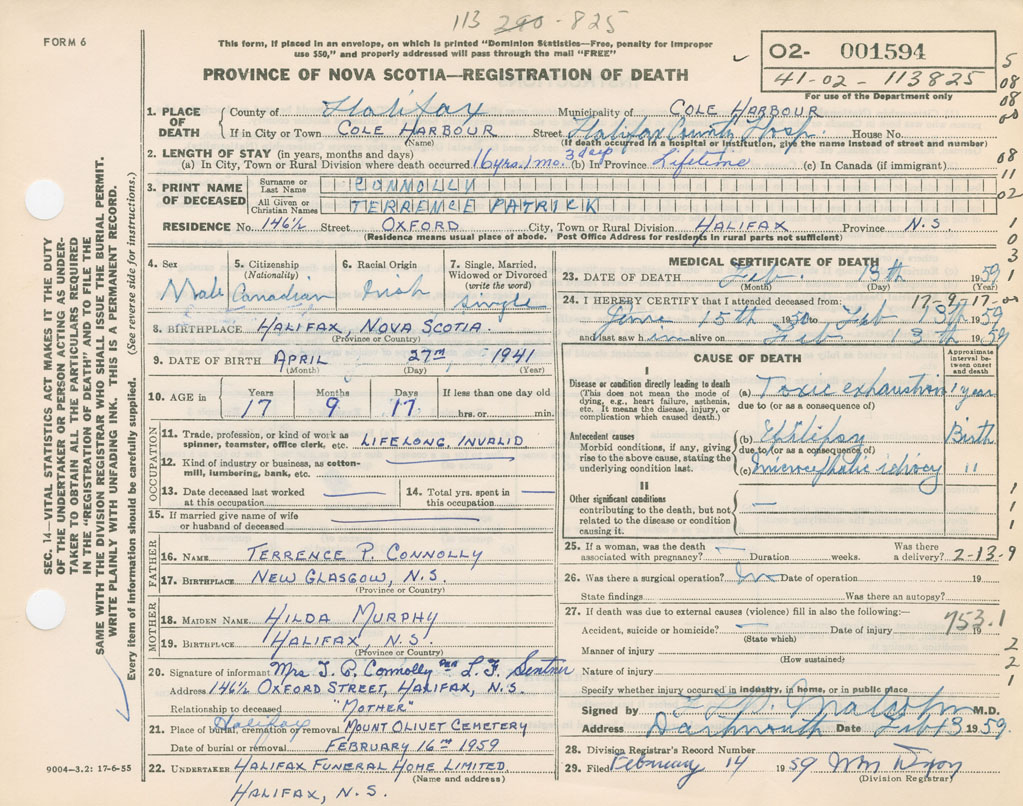 113 290 - 825
FORM 6
This form, if placed in an envelope, on which is printed "Dominion Statistics—Free, penalty for improper
use $50," and properly addressed will pass through the mail "FREE"
PROVINCE OF NOVA SCOTIA—REGISTRATION OF DEATH
O2- 001594
41-02-113825
For use of the Department only
1. PLACE OF DEATH
County of Halifax Municipality of COLE HARBOUR
If in City or Town COLE HARBOUR Street Halifax County Hosp. House No.
(Name) (If death occurred in a hospital or institution, give the name instead of street and number)
2. LENGTH OF STAY (in years, months and days)
(a) In City, Town or Rural Division where death occurred 16 yrs. 1 mo. 3 days (b) In Province Lifetime (c) In Canada (if immigrant)
3. PRINT NAME OF DECEASED
Surname or Last Name CONNOLLY
All Given or Christian Names TERRENCE PATRICK
RESIDENCE No. 146½ Street OXFORD City, Town or Rural Division HALIFAX Province N.S.
(Residence means usual place of abode. Post Office Address for residents in rural parts not sufficient)
4. Sex Male
5. Citizenship (Nationality) Canadian
6. Racial Origin Irish
7. Single, Married, Widowed or Divorced (write the word) Single
8. BIRTHPLACE HALIFAX, NOVA SCOTIA.
(Province or Country)
9. DATE OF BIRTH APRIL 27TH, 1941
(Month) (Day) (Year)
10. AGE in Years 17 Months 9 Days 17 If less than one day old
hrs. or min.
OCCUPATION
11. Trade, profession, or kind of work as
spinner, teamster, office clerk, etc. LIFELONG INVALID
12. Kind of industry or business, as cotton-
mill, lumbering, bank, etc.
13. Date deceased last worked
at this occupation
14. Total yrs. spent in
this occupation
15. If married give name of wife
or husband of deceased
FATHER
16. NAME TERRENCE P. CONNOLLY
17. BIRTHPLACE NEW GLASGOW, N.S.
(Province or Country)
MOTHER
18. MAIDEN NAME HILDA MURPHY
19. BIRTHPLACE HALIFAX, N.S.
(Province or Country)
20. Signature of informant Mrs T. P. Connolly PER L. F. Sentner
Address 146½ OXFORD STREET, HALIFAX, N.S.
Relationship to deceased "MOTHER"
Halifax
21. Place of burial, cremation or removal MOUNT OLIVET CEMETERY
Date of burial or removal FEBRUARY 16TH 1959
22. UNDERTAKER HALIFAX FUNERAL HOME LIMITED
(Name and address)
HALIFAX, N.S.
9004—3.2: 17-6-55
MEDICAL CERTIFICATE OF DEATH
23. DATE OF DEATH Feb. 13th 1959
(Month) (Day) (Year)
24. I HEREBY CERTIFY that I attended deceased from: 17-9-17-
June 15th 1950 to Feb 13th 1959
and last saw him alive on Feb 13th 1959
CAUSE OF DEATH
Approximate interval between onset and death
I
Disease or condition directly leading to death
(This does not mean the mode of
dying, e.g., heart failure, asthenia,
etc. It means the disease, injury, or
complication which caused death.)
(a) Toxic exhaustion 1 year
due to (or as a consequence of)
Antecedent causes
Morbid conditions, if any, giving
rise to the above cause, stating the
underlying condition last.
(b) Epilepsy Birth
due to (or as a consequence of)
(c) microcephalic idiocy "
II
Other significant conditions
contributing to the death, but not
related to the disease or condition
causing it.
25. If a woman, was the death
associated with pregnancy? Duration weeks. Was there
a delivery? 2-13-9
26. Was there a surgical operation? no Date of operation 19
State findings Was there an autopsy?
27. If death was due to external causes (violence) fill in also the following:—
753.1
Accident, suicide or homicide? Date of injury 19
(State which)
Manner of injury
(How sustained)
Nature of injury
Specify whether injury occurred in industry, in home, or in public place
Signed by Malcolm M.D.
Address Dartmouth Date Feb 13 1959.
28. Division Registrar's Record Number
29. Filed February 14 1959 Wm Dixon
(Division Registrar)
SEC. 14—VITAL STATISTICS ACT MAKES IT THE DUTY
OF THE UNDERTAKER OR PERSON ACTING AS UNDER-
TAKER TO OBTAIN ALL THE PARTICULARS REQUIRED
IN THE "REGISTRATION OF DEATH" AND TO FILE THE
SAME WITH THE DIVISION REGISTRAR WHO SHALL ISSUE THE BURIAL PERMIT.
WRITE PLAINLY WITH UNFADING INK. THIS IS A PERMANENT RECORD.
Every item of information should be carefully supplied. (See reverse side for instructions.)
5
08
08
00
08
11
02
1
0
3
1
1
1
1
2
2
1